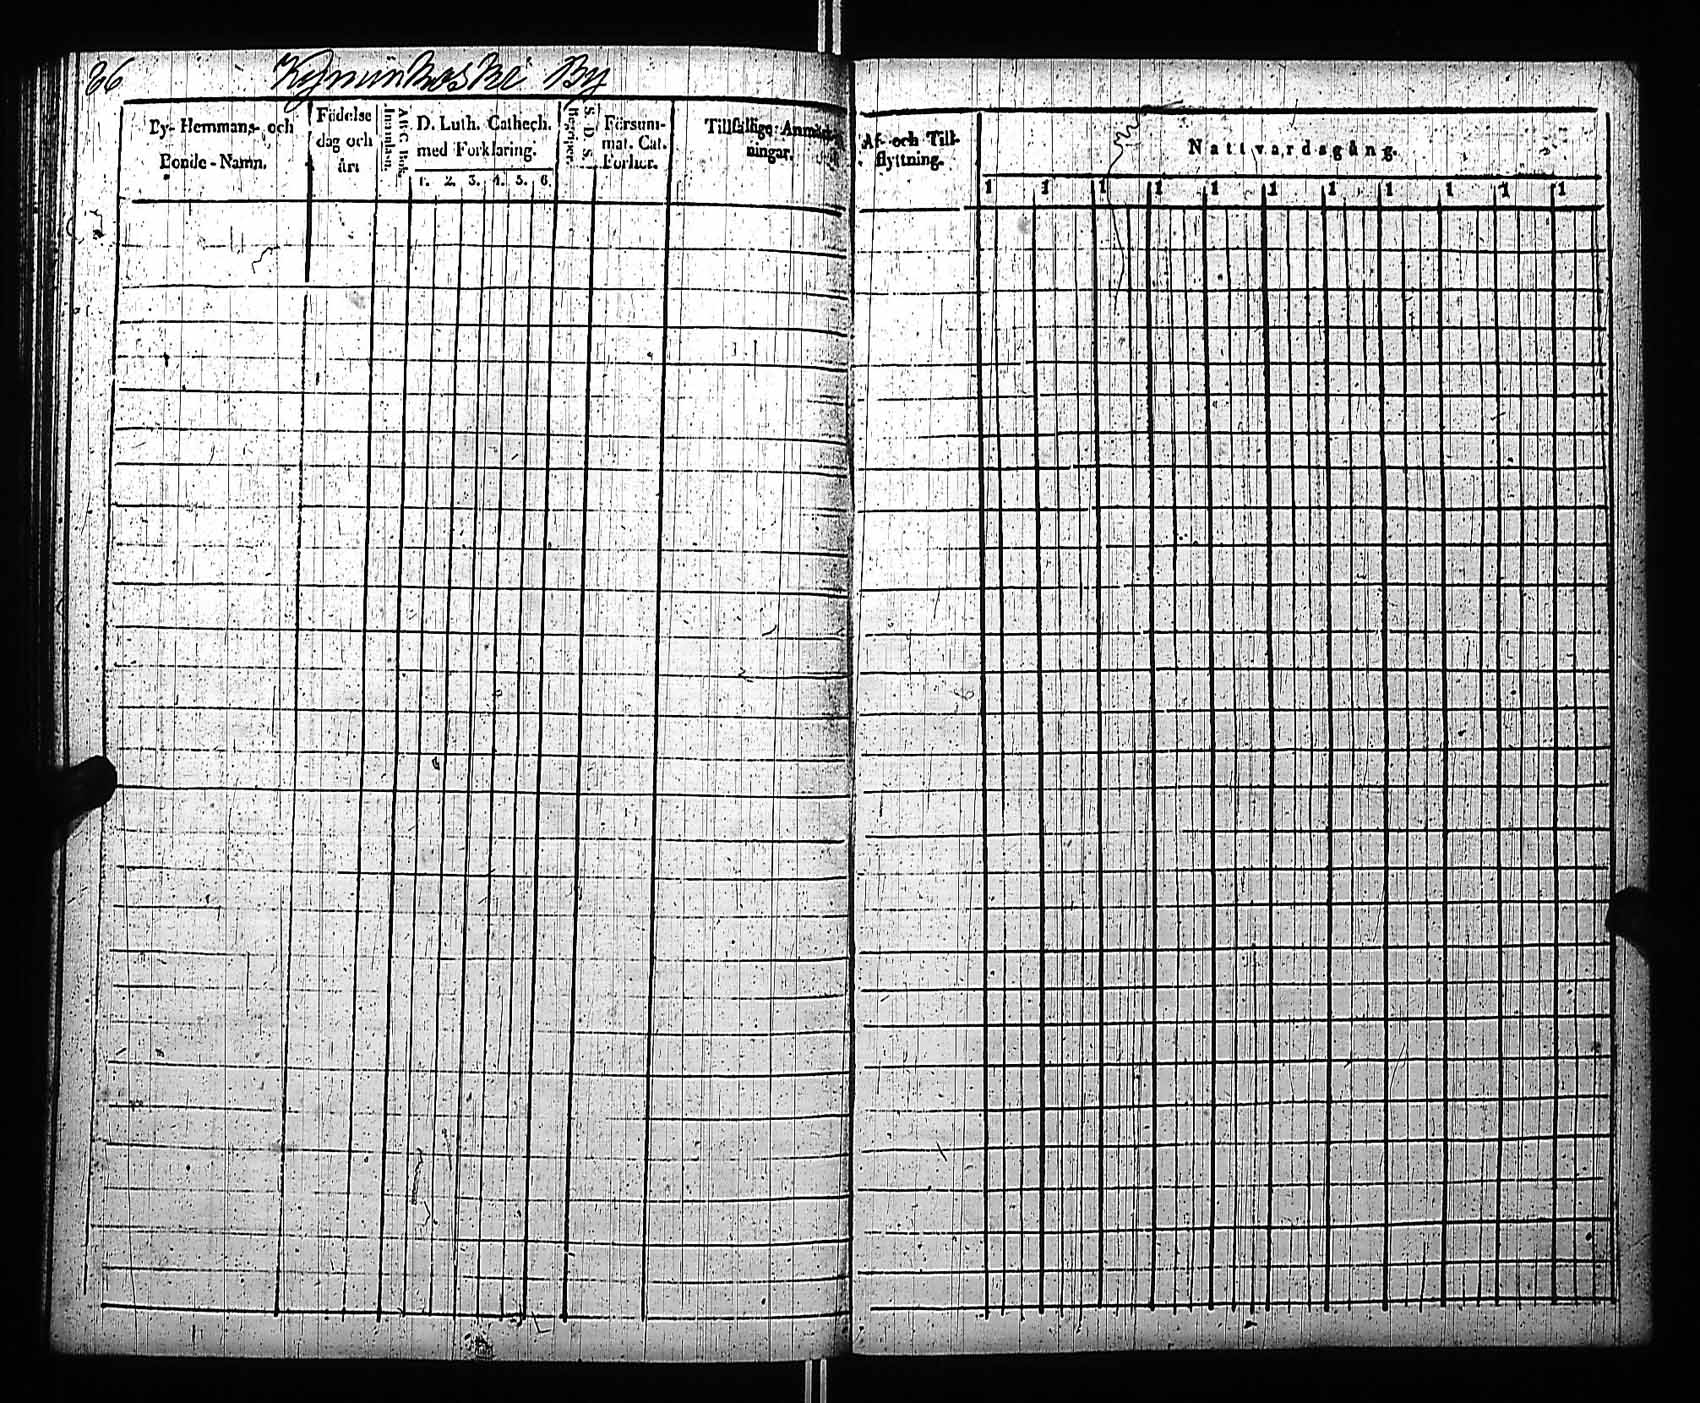 86 Kymenkoski By
By- Hemmans- och
Bonde-Namn.
Födelse
dag och
år.
A-B-C Bok.
Innanläsn.
D. Luth. Cathech.
med Förklaring.
1. 2. 3. 4. 5. 6.
S. D. S.
Begriper.
Försum-
mat. Cat.
Förhör.
Tillfällige Anmärk-
ningar.
Af- och Till-
flyttning.
Nattvardsgång.
1 1 1 1 1 1 1 1 1 1 1